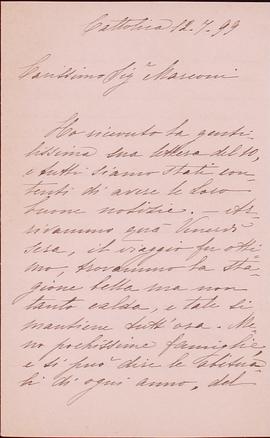 Cattolica 12. 7. 99
Carissimo Sig.r Marconi
Ho ricevuto la genti-
lissima sua lettera del 10,
e tutti siamo stati con-
tenti di avere le Loro
buone notizie. - Ar-
rivammo quà Venerdì
sera, il viaggio fu otti-
mo, trovammo la sta-
gione bella ma non
tanto calda, e tale si
mantiene tutt'ora. Me-
no pochissime famiglie,
e si può dire le abitua-
li di ogni anno, del